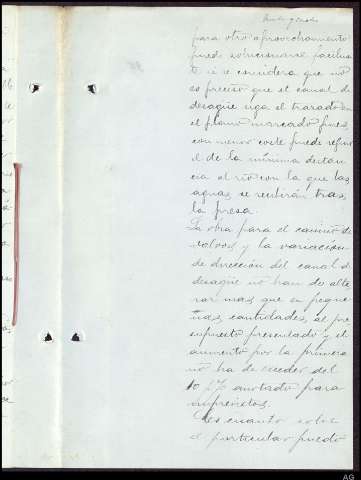 para otro aprovechamiento
puede solucionarse facilmen
te si se considera que no
es preciso que el canal de
desagüe siga el trazado
el plano marcado pues,
con menor coste puede
el de la mínima distan
cia al río con la que las
aguas se recibirán tras
la presa.
La obra para el camino de
y la variación
de dirección del canal de
desagüe no han de alte
rar mas que en peque
ñas cantidades, el pre
supuesto presentado y el
aumento por la primera
no ha de exceder del
10 % anotado para
imprevistos.
Es cuanto sobre
el particular puedo
AG